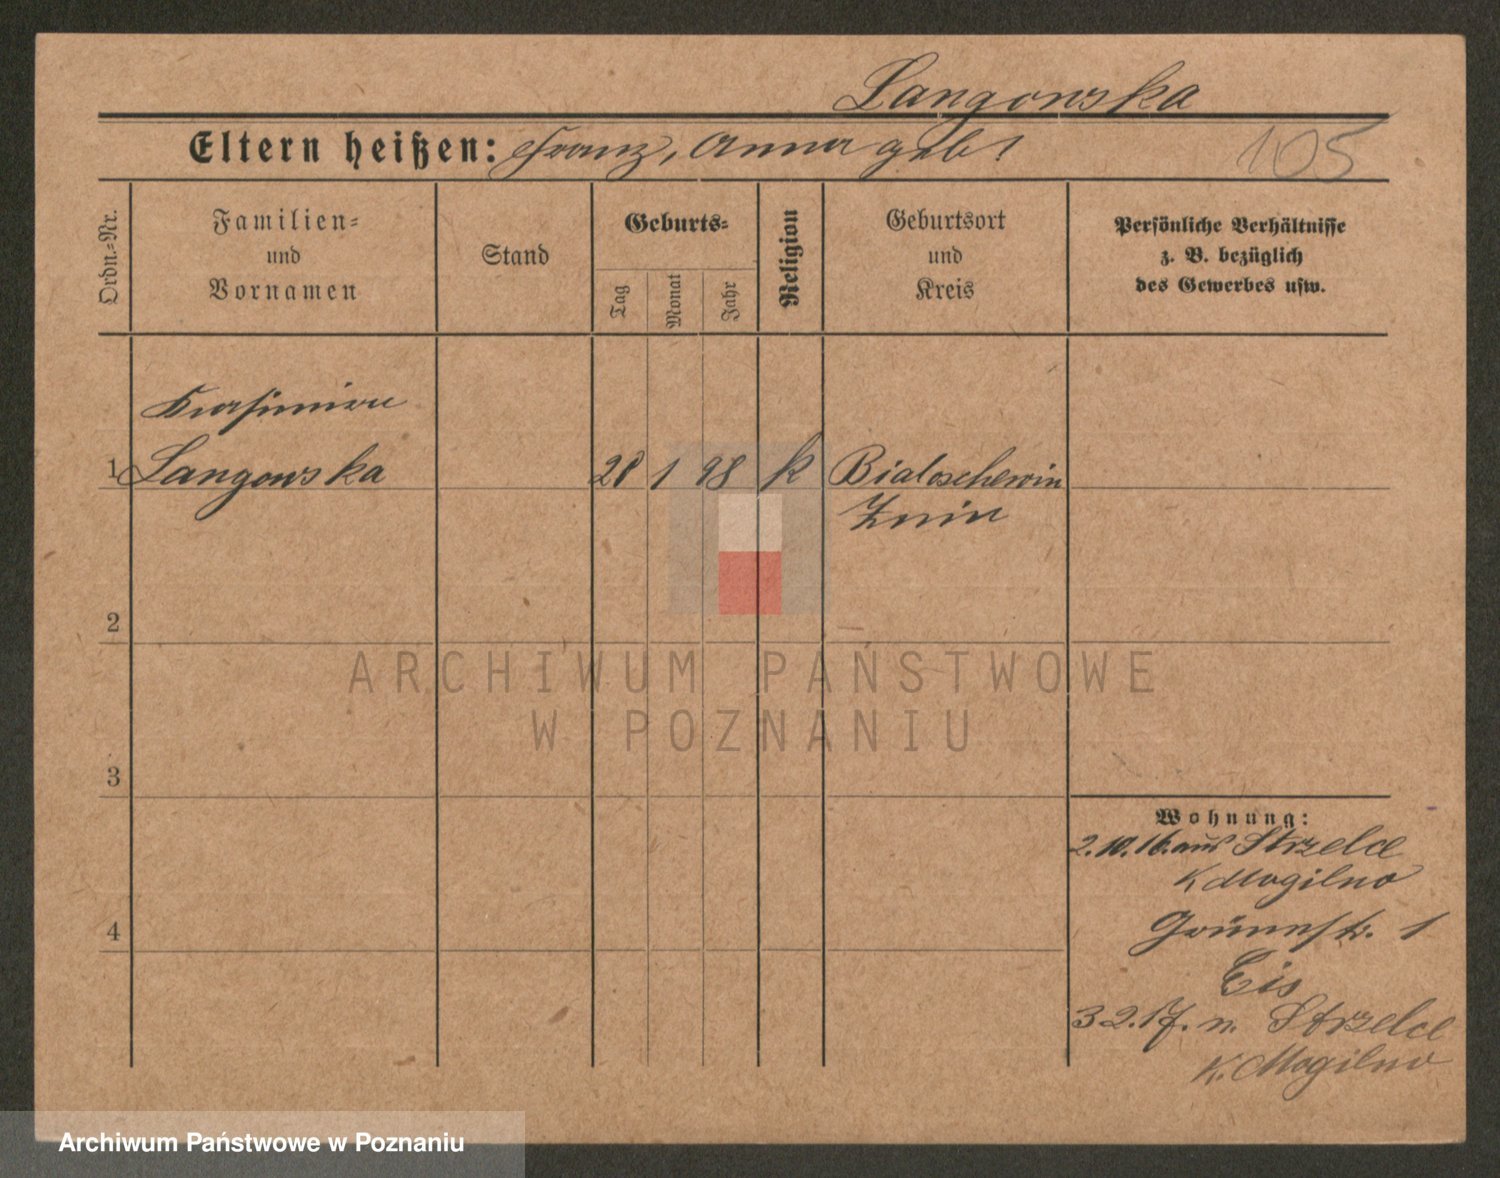 Langowska
Eltern heißen: Franz, Anna geb
105
Ordn.-Nr.
Familien-
und
Vornamen
Stand
Geburts-
Tag
Monat
Jahr
Religion
Geburtsort
und
Kreis
Persönliche Verhältnisse
z. B. bezüglich
des Gewerbes usw.
Kasimira
1 Langowska 28 1 98 k Bialoschewin
Znin
2
3
4
Wohnung:
2.10.16. aus Strzelce
K Mogilno
Grünestr. 1
Eis
3 2.17. n. Strzelce
K. Mogilno
ARCHIWUM PAŃSTWOWE
W POZNANIU
Archiwum Państwowe w Poznaniu